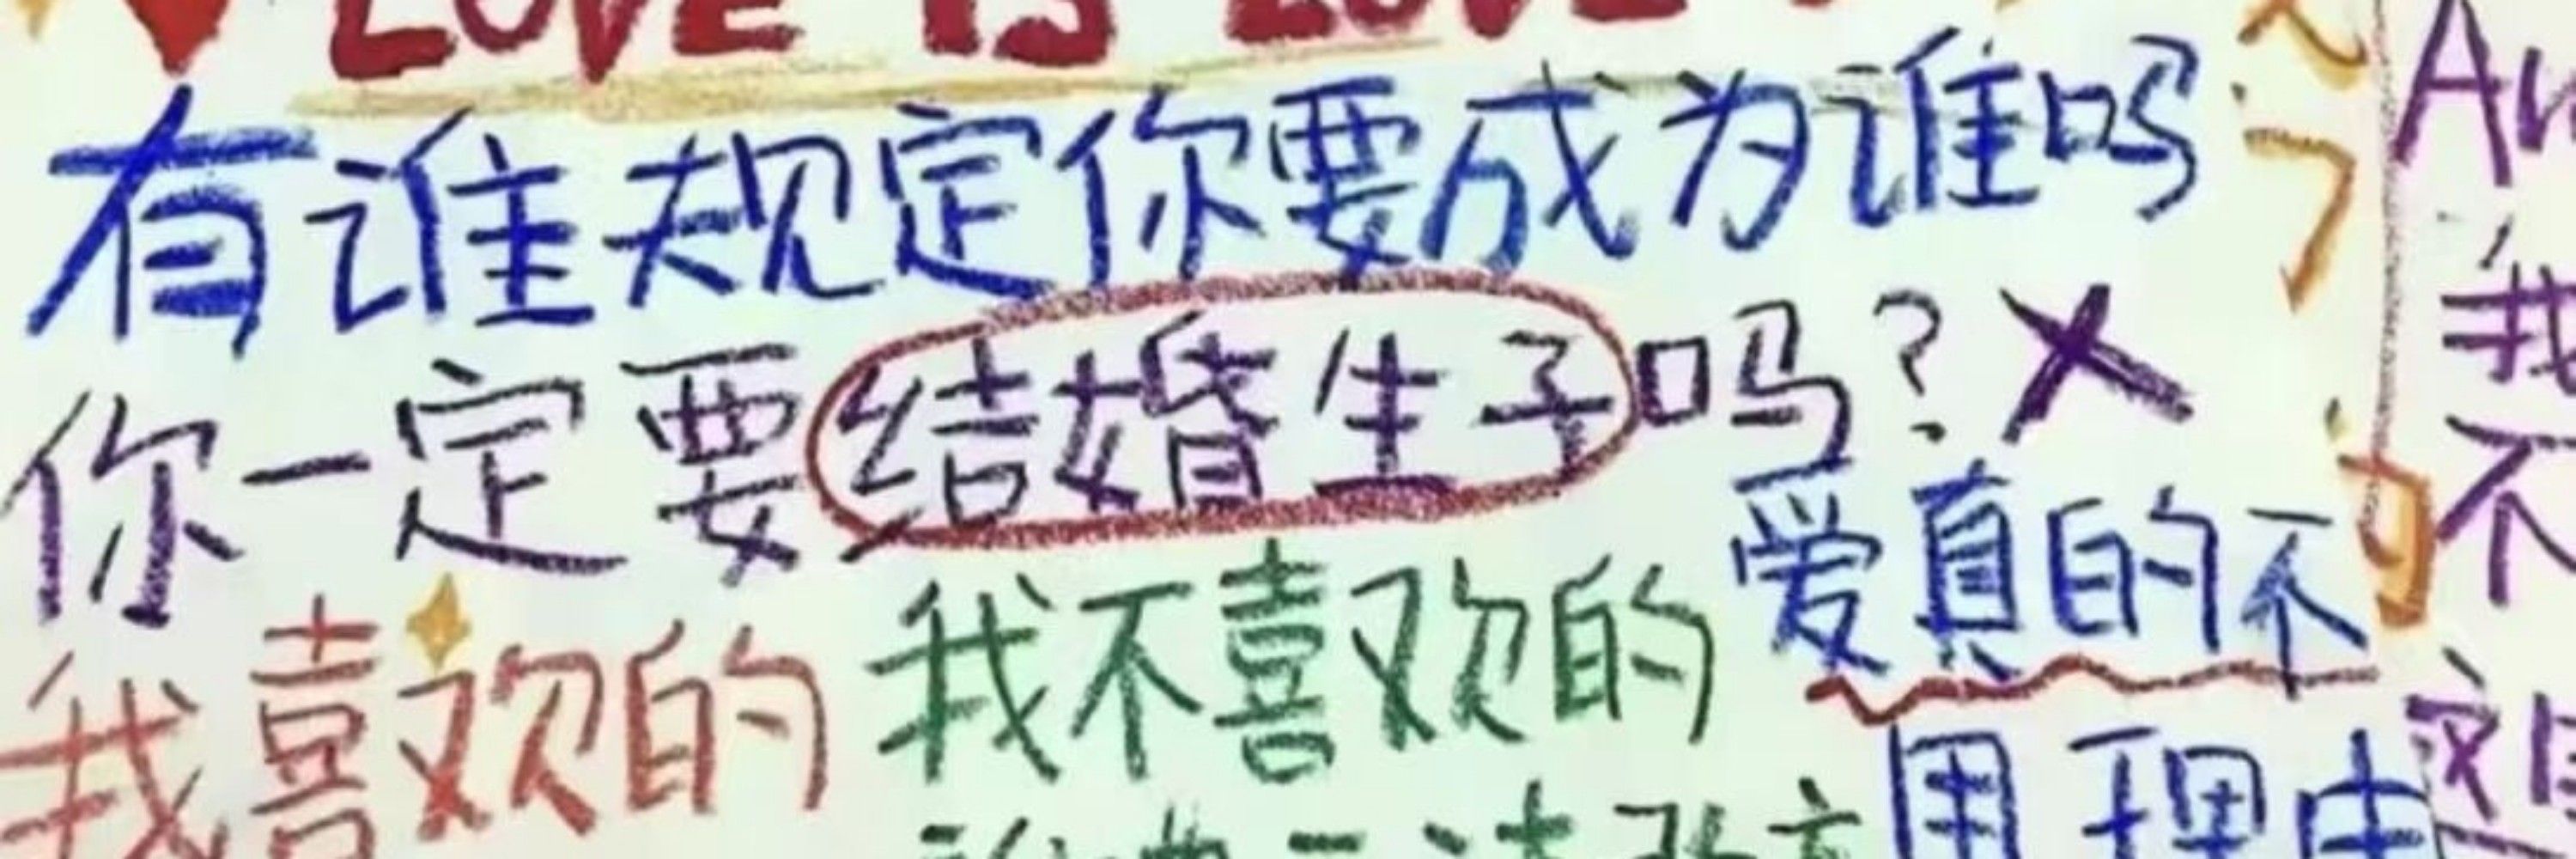 LOVE IS LOVE
有谁规定你要成为谁吗
你一定要结婚生子吗?
爱真的不
用理由
我喜欢的
我不喜欢的
我
不